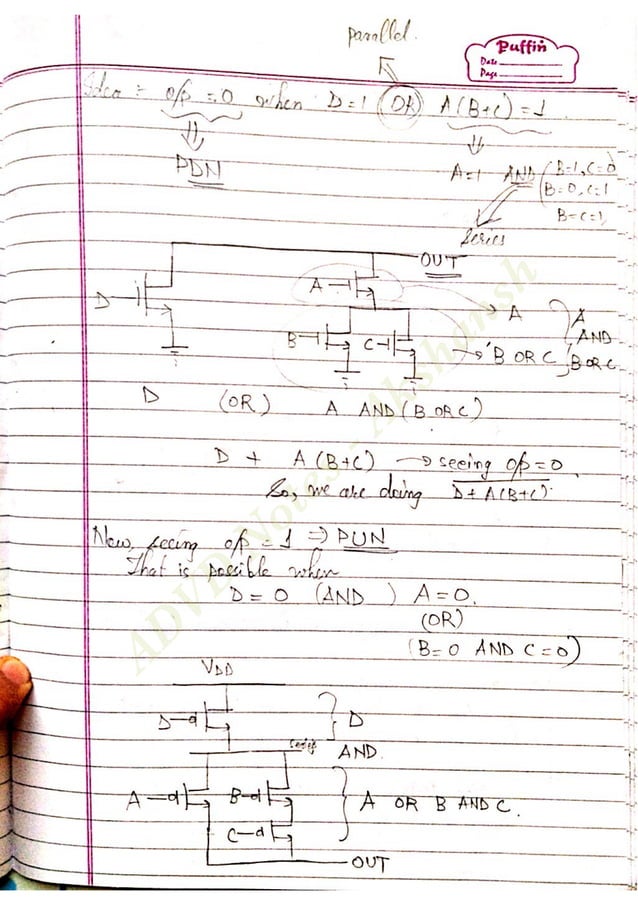 parallel.
Puffin
Date
Page
Idea = o/p = 0 when D=1 (OR) A(B+C) = 1
PDN
A=1 AND (B=1, C=0
B=0, C=1
B=C=1,
Series
OUT
D
A
B
C
A
'B OR C'
A
AND
B OR C
D (OR) A AND (B OR C)
D + A(B+C) → seeing o/p = 0
So, we are doing D+A(B+C)
Now, seeing o/p = 1 ⇒ PUN
That is possible when
D = 0 (AND) A = 0.
(OR)
(B=0 AND C=0)
VDD
D
D
series
AND
A
B
A OR B AND C.
C
OUT
ADVD Notes - Akshansh